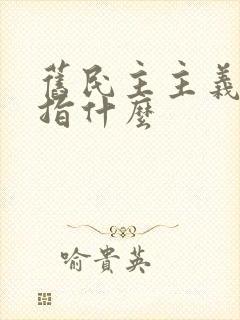 舊民主主義
指什麼
喻貴英